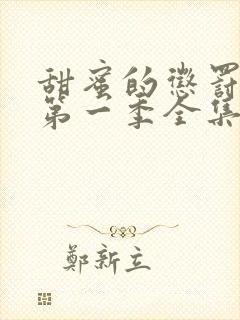 甜蜜的懲罰
第一季全集
鄭新立